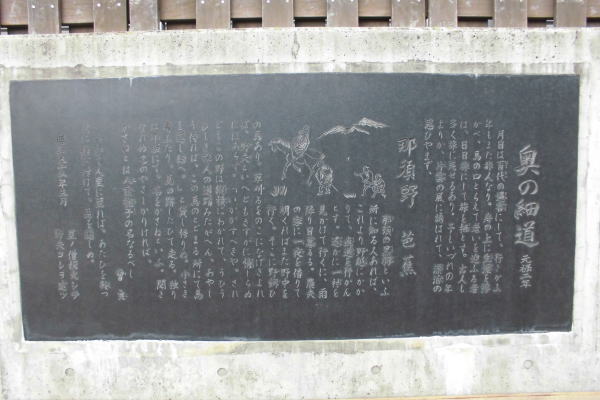 奥の細道
元禄二年
月日は百代の過客にして、行きかふ
年もまた旅人なり。舟の上に生涯を浮
かべ、馬の口とらえて老いを迎ふる者
は、日日旅にして旅を栖とす。古人も
多く旅に死せるあり。予もいづれの年
よりか、片雲の風に誘はれて、漂泊の
思ひやまず、
那須野 芭蕉
那須の黒羽といふ
所に知る人あれば、
これより野越にかか
りて、直道を行かん
とす。遥かに一村を
見かけて行くに、雨
降り日暮るる。農夫
の家に一夜を借りて
明くればまた野中を
行く。そこに野飼ひ
の馬あり。草刈るをのこになげきよれ
ば、野夫といへどもさすがに情しらぬ
にはあらず、「いかがすべきや。され
どもこの野は縦横にわかれて、うひう
ひしき旅人の道踏みたがへん、あやし
う侍れば、この馬のとどまる所にて馬
を返し給へ」と貸し侍りぬ。小さき
者ふたり、馬の跡したひて走る。独り
は小姫にて、名をかさねと云ふ。聞き
なれぬ名のやさしかりければ、
かさねとは八重撫子の名なるべし
曽良